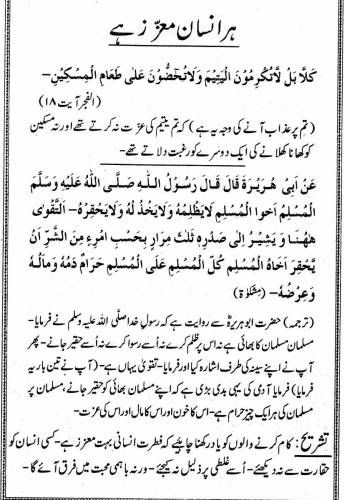 ہر انسان معزّز ہے
كَلَّا بَلْ لَّاتُكْرِمُوْنَ الْيَتِيْمَ وَلَاتَحُضُّوْنَ عَلٰى طَعَامِ الْمِسْكِيْنِ–
(الفجر آیت ۱۸)
(تم پر عذاب آنے کی وجہ یہ ہے) کہ تم یتیم کی عزّت نہ کرتے تھے اور نہ مسکین
کو کھانا کھلانے کی ایک دوسرے کو رغبت دلاتے تھے–
عَنْ اَبِىْ هُرَيْرَةَ قَالَ قَالَ رَسُوْلُ اللهِ صَلَّى اللهُ عَلَيْهِ وَسَلَّمَ
الْمُسْلِمُ اَخوا الْمُسْلِمِ لَايَظْلِمُهٗ وَلَايَخْذُ لُهٗ وَلَايَحْقِرُهٗ– اَلتَّقْوٰى
هٰهُنَا وَ يَشِيْرُ اِلٰى صَدْرِهٖ ثَلٰثَ مِرَارٍ بِحَسْبِ امْرِءٍ مِنَ الشَّرِّ اَنْ
يَّحْقِرَ اَخَاهُ الْمُسْلِمَ كُلُّ الْمُسْلِمِ عَلَى الْمُسْلِمِ حَرَامٌ دَمُهٗ وَمَالُهٗ
وَعِرْضُهٗ– (مشکوٰۃ)
(ترجمہ) حضرت ابوہریرہؓ سے روایت ہے کہ رسولِ خدا صلی اللہ علیہ وسلم نے فرمایا–
مسلمان مسلمان کا بھائی ہے نہ اس پر ظلم کرے نہ اُسے رسوا کرے نہ اُسے حقیر جانے– پھر
آپ نے اپنے سینہ کی طرف اشارہ کیا اور فرمایا– تقویٰ یہاں ہے– (آپ نے تین بار یہ
فرمایا) فرمایا آدمی کی یہی بدی بڑی ہے کہ اپنے مسلمان بھائی کو حقیر جانے– مسلمان پر
مسلمان کی ہر ایک چیز حرام ہے– اس کا خون اور اس کا مال اور اس کی عزت–
تشریح: کام کرنے والوں کو یاد رکھنا چاہیئے کہ فطرت انسانی بہت معزز ہے– کسی انسان کو
حقارت سے نہ دیکھئے– اُسے غلطی پر ذلیل نہ کیجئے– ورنہ باہمی محبت میں فرق آئے گا–